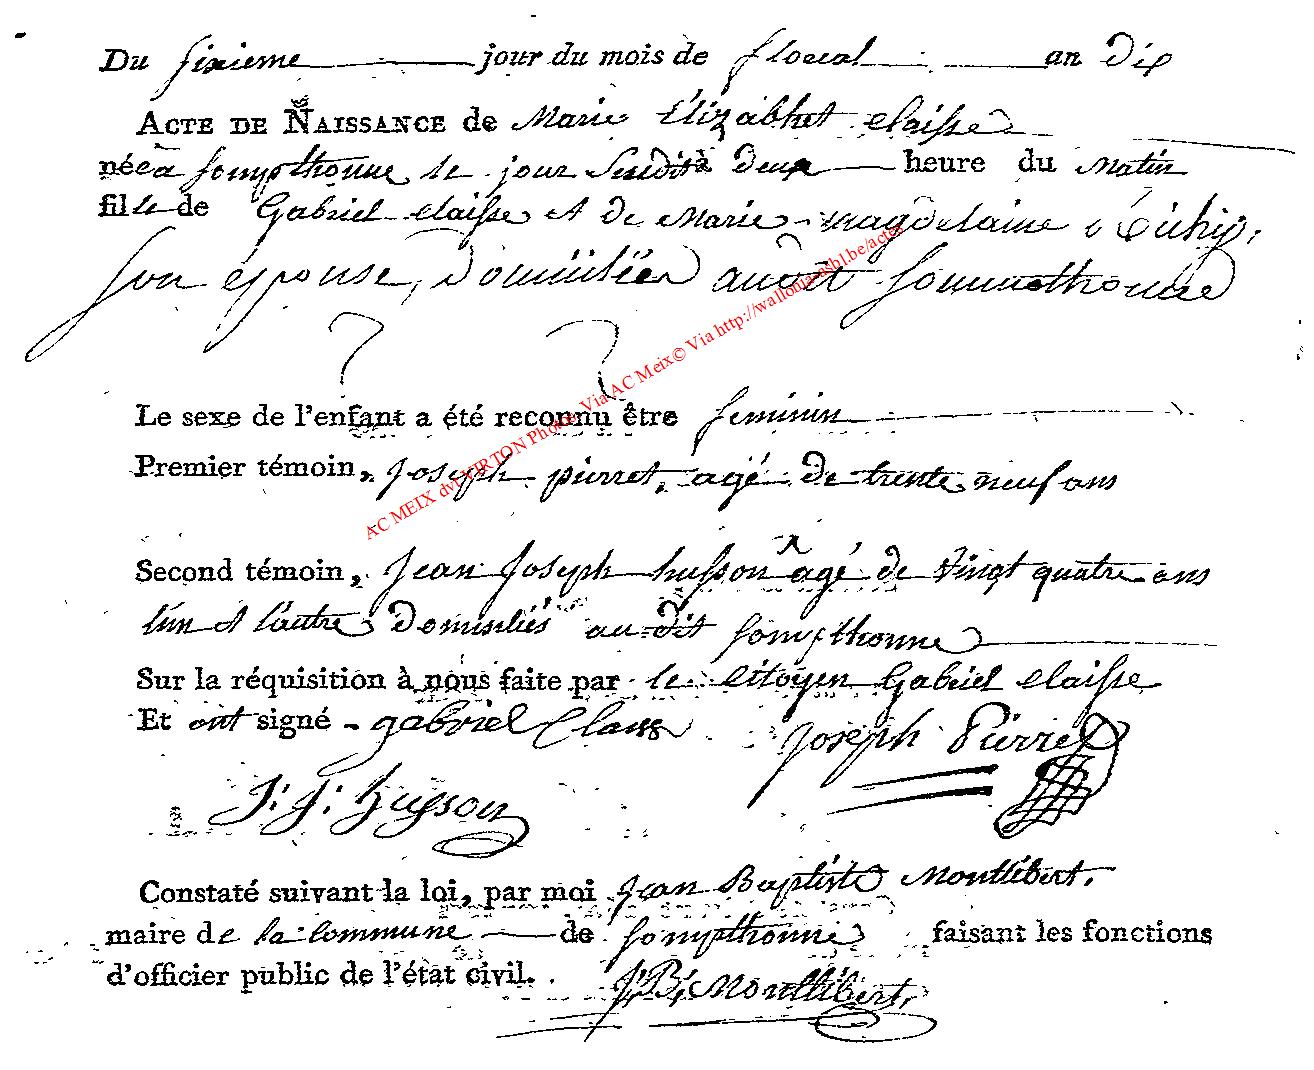 Du sixieme jour du mois de floreal an dix
ACTE DE NAISSANCE de Marie Elizabhet claisse
née a sompthonne le jour susdit à deux heure du Matin
fille de Gabriel claisse et de Marie magdelaine
son épouse, domiciliée audit sommethonne
Le sexe de l'enfant a été reconnu être feminin
Premier témoin, joseph pierret, agé de trente neuf ans
Second témoin, Jean Joseph husson agé de vingt quatre ans
l'un et l'autre domiciliés au dit sompthonne
Sur la réquisition à nous faite par le citoyen Gabriel claisse
Et ont signé - gabriel Claiss Joseph Pierret
J: J: husson
Constaté suivant la loi, par moi jean Baptiste Montlibert.
maire de la commune de sompthonne faisant les fonctions
d'officier public de l'état civil. J: B: Montlibert,
AC MEIX dvt VIRTON Photos Via AC Meix© Via http://wallonia-asbl.be/actes